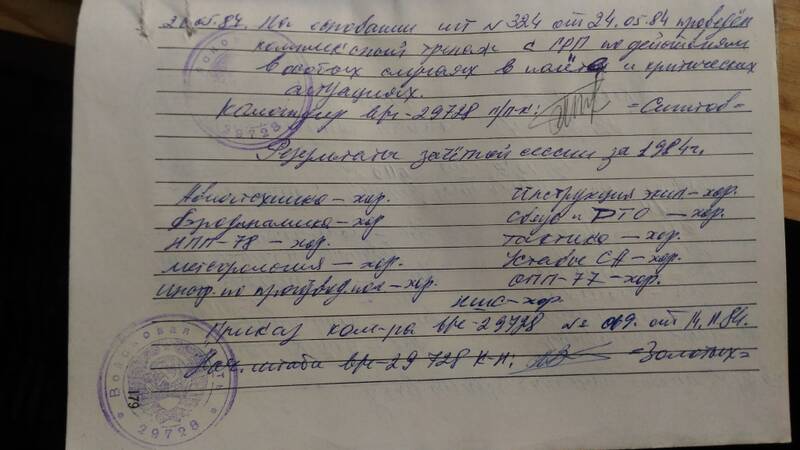 05.84. На основании шт № 324 от 24.05.84 проведён
комплексный тренаж с ГРП по действиям
в особых случаях в полёте и критических
ситуациях.
Командир в/ч-29728 п/п-к:
Результаты зачётной сессии за 1984г.
Авиотехника – хор. Инструкция экип – хор.
Аэродинамика – хор Обсуд и РТО – хор.
НПП-78 – хор. Тактика – хор.
Метеорология – хор. Уставы СА – хор.
Инстр. по производ – хор. ОПП-77 – хор.
НШС – хор.
Приказ ком-ра в/ч-29728 № от 14.11.84.
Нач. штаба в/ч-29728 к-н: =Золотых=
Войсковая часть
29728
179
29728